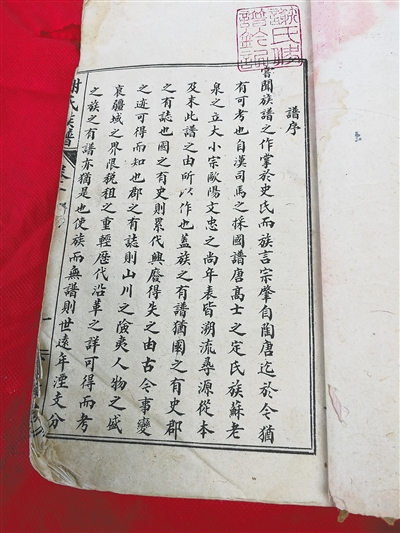 譜序
嘗聞族譜之作掌於史氏而族言宗肇自陶唐迄於今猶
有可考也自漢司馬之採國譜唐高士之定氏族蘇老
泉之立大小宗歐陽文忠之尚年表皆溯流尋源從本
及末此譜之由所以作也蓋族之有譜猶國之有史郡
之有誌也國之有史則累代興廢得失之由古今事變
之迹可得而知也郡之有誌則山川之險夷人物之盛
衰疆域之界限稅租之重輕歷代沿革之詳可得而考
之族之有譜亦猶是也使族而無譜則世遠年湮支分
謝氏族譜
卷一